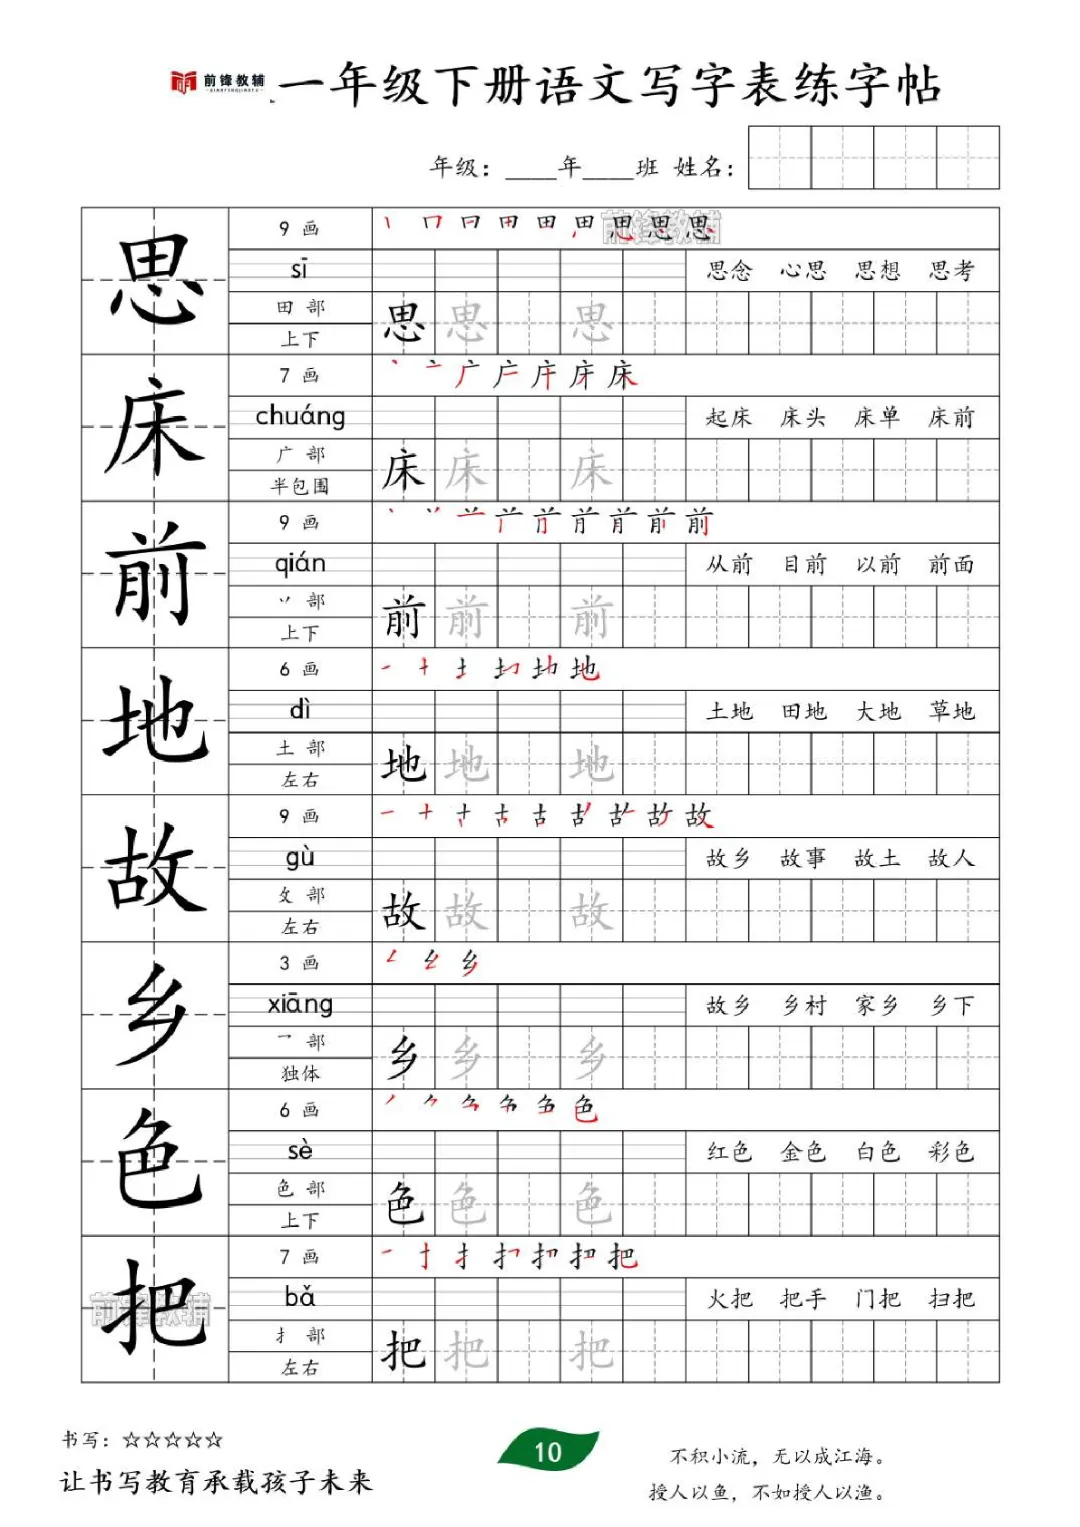 前锋教辅
QIANFENGJIAOFU
一年级下册语文写字表练字帖
年级：____年____班 姓名：
思
9 画
丨 冂 冃 田 田 田 思 思 思
前锋教辅
sī
思念 心思 思想 思考
田 部
思 思 思
上下
床
7 画
丶 亠 广 庐 庁 床 床
chuáng
起床 床头 床单 床前
广 部
床 床 床
半包围
前
9 画
前
qián
从前 目前 以前 前面
丷 部
前 前 前
上下
地
6 画
一 十 土 地
dì
土地 田地 大地 草地
土 部
地 地 地
左右
故
9 画
一 十 古 古 故
gù
故乡 故事 故土 故人
攵 部
故 故 故
左右
乡
3 画
乡
xiāng
故乡 乡村 家乡 乡下
乛 部
乡 乡 乡
独体
色
6 画
丿 色
sè
红色 金色 白色 彩色
色 部
色 色 色
上下
把
7 画
一 扌 把
bǎ
火把 把手 门把 扫把
扌 部
把 把 把
左右
前锋教辅
书写：☆☆☆☆☆
让书写教育承载孩子未来
10
不积小流，无以成江海。
授人以鱼，不如授人以渔。